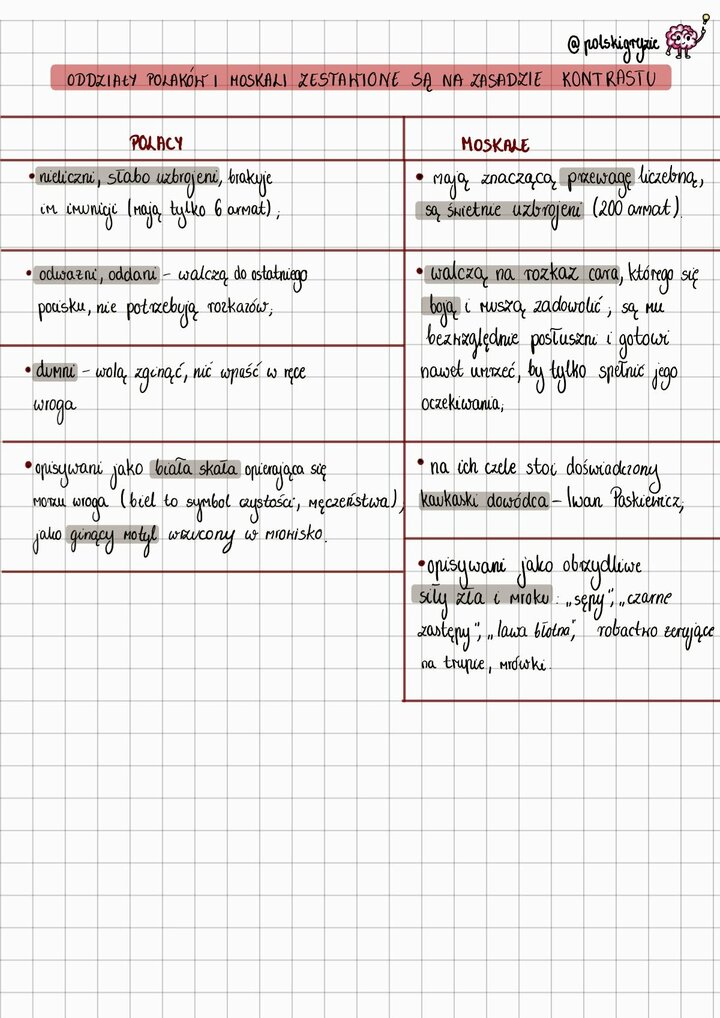 @polskigryzie
ODDZIAŁY POLAKÓW I MOSKALI ZESTAWIONE SĄ NA ZASADZIE KONTRASTU
POLACY
• nieliczni, słabo uzbrojeni, brakuje
im amunicji (mają tylko 6 armat),
• odważni, oddani – walczą do ostatniego
pocisku, nie potrzebują rozkazów;
• dumni – wolą zginąć, niż wpaść w ręce
wroga
• opisywani jako biała skała opierająca się
morzu wroga (biel to symbol czystości, męczeństwa),
jako ginący motyl wrzucony w mrowisko.
MOSKALE
• mają znaczącą przewagę liczebną,
są świetnie uzbrojeni (200 armat).
• walczą na rozkaz cara, którego się
boją i muszą zadowolić; są mu
bezwzględnie posłuszni i gotowi
nawet umrzeć, by tylko spełnić jego
oczekiwania;
• na ich czele stoi doświadczony
kaukaski dowódca – Iwan Paskiewicz;
• opisywani jako obrzydliwe
siły zła i mroku: „sępy”, „czarne
zastępy”, „lawa błotna”, robactwo żerujące
na trupie, mrówki.